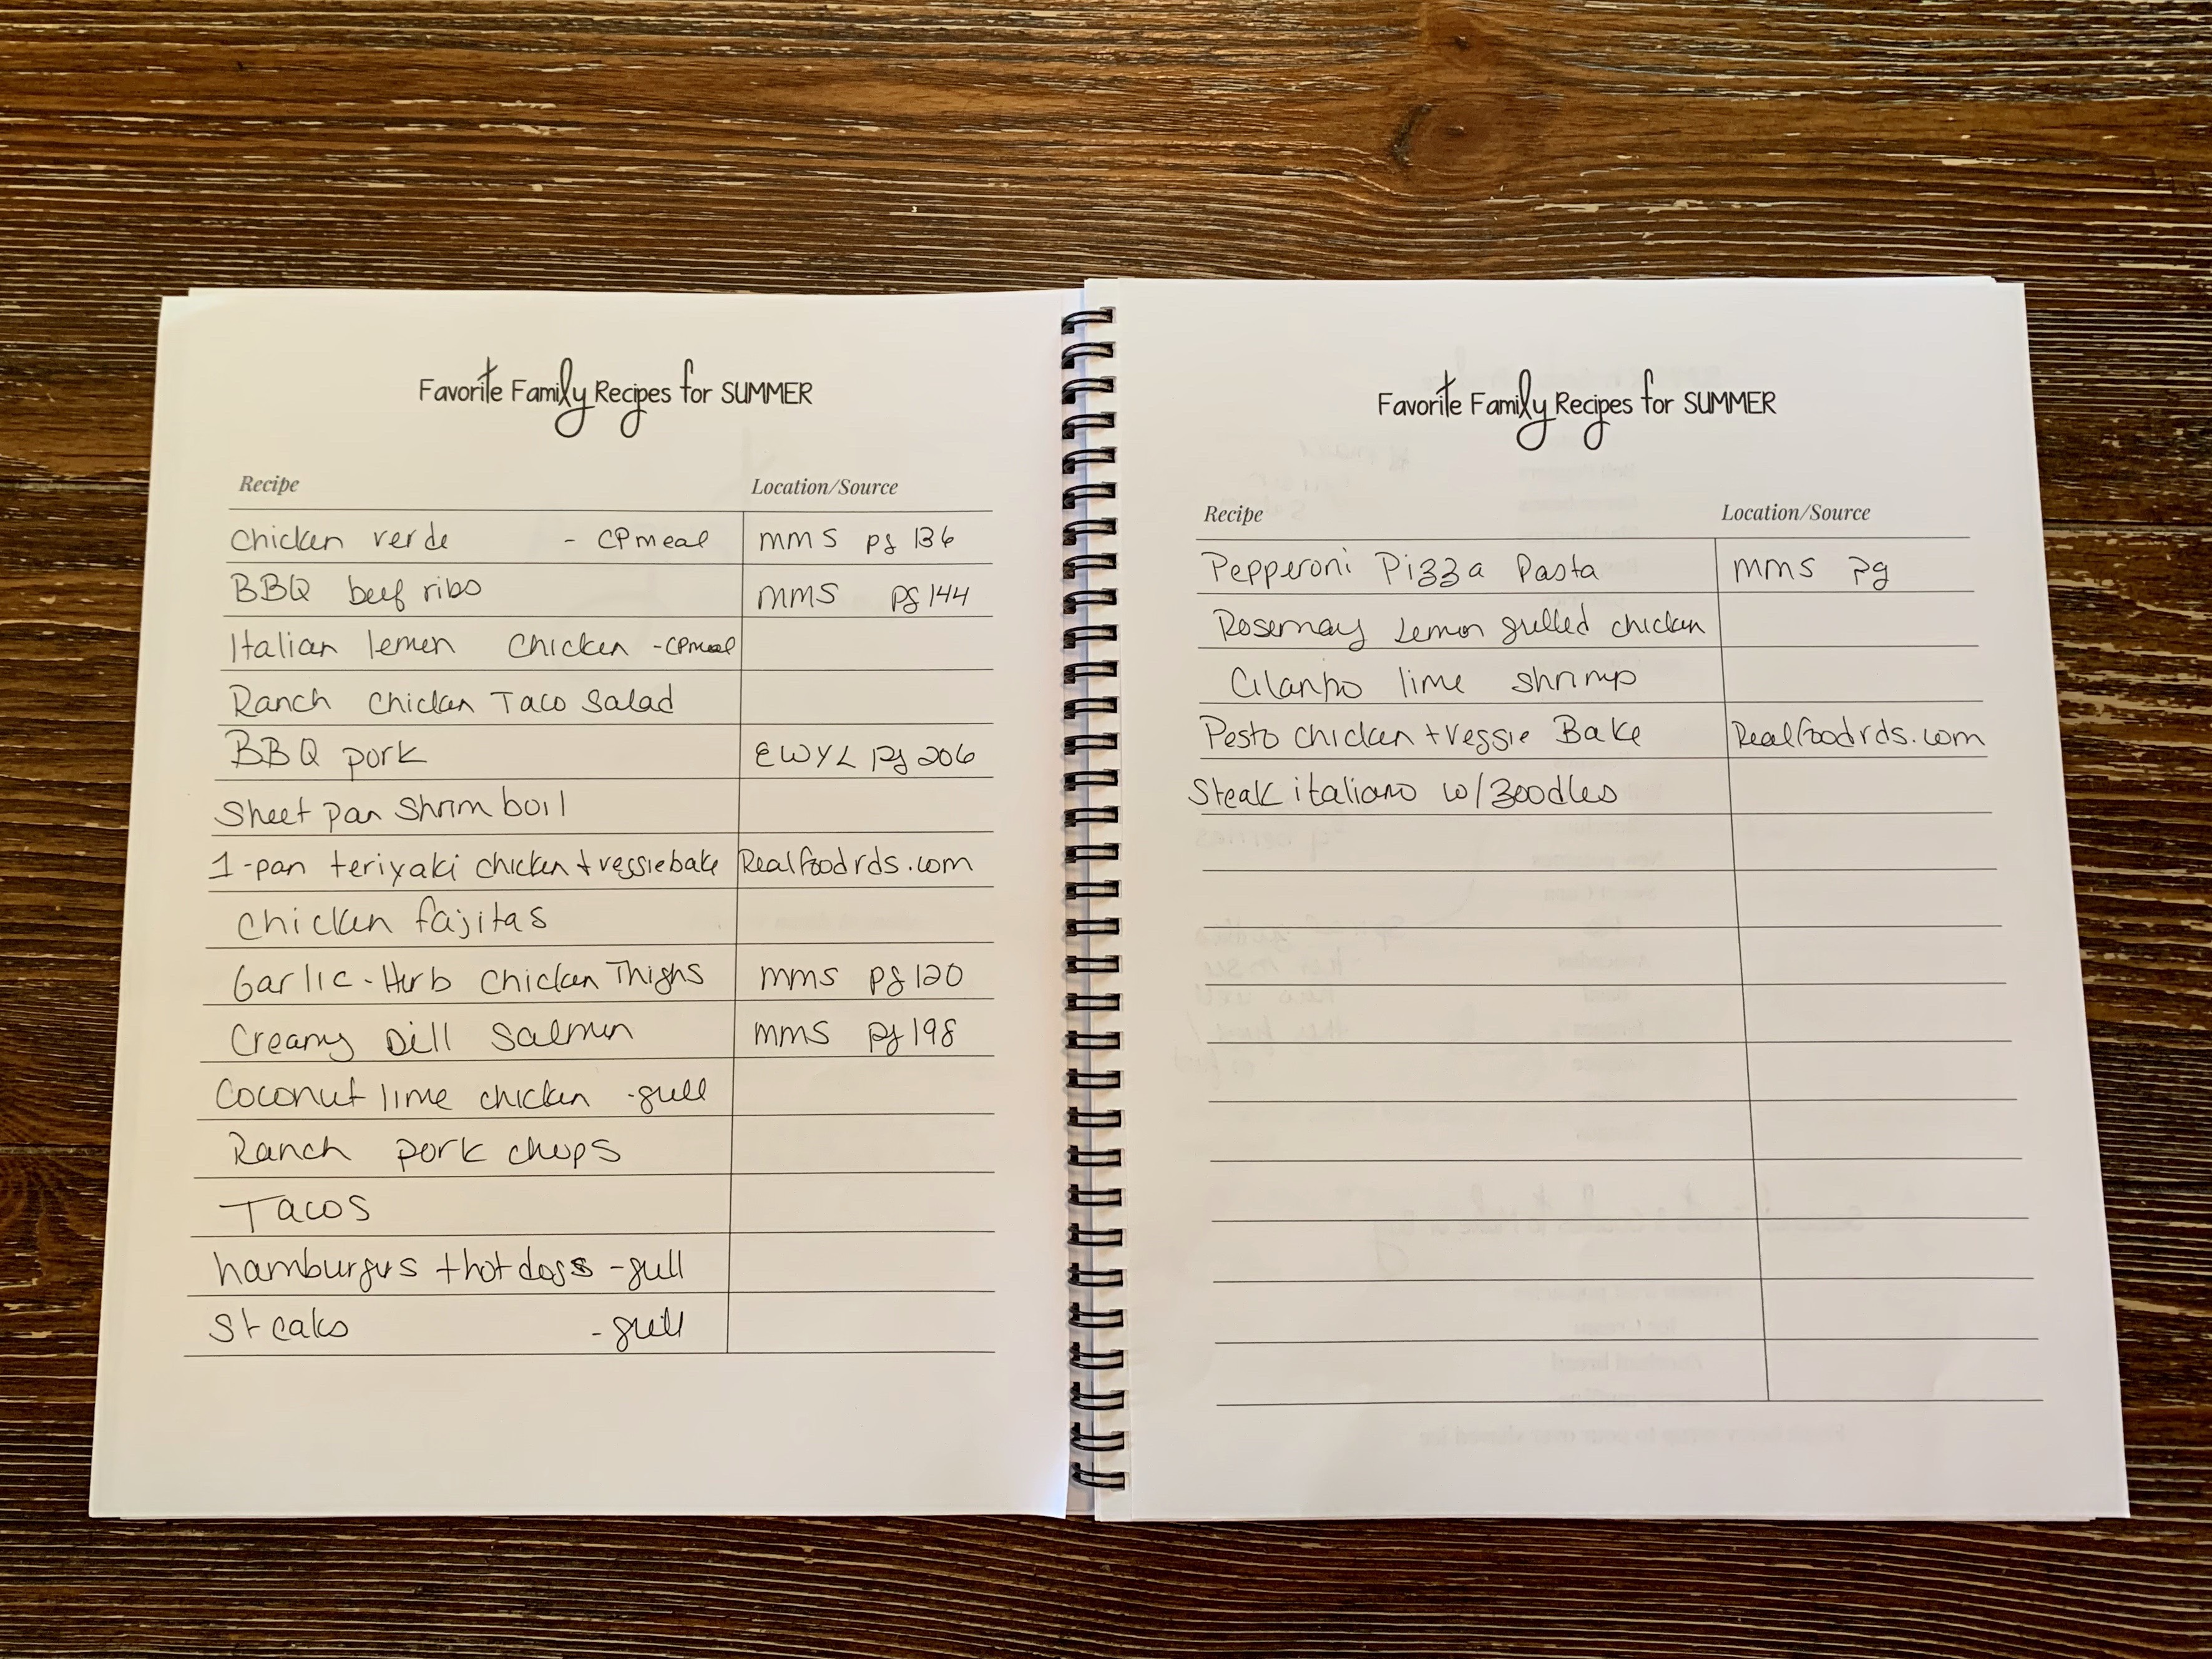 Favorite Family Recipes for SUMMER
Recipe Location/Source
Chicken verde - CPmeal MMS pg 136
BBQ beef ribs MMS pg 144
Italian lemon Chicken -CPmeal
Ranch Chicken Taco Salad
BBQ pork EWYL pg 206
Sheet pan Shrim boil
1-pan teriyaki chicken + veggie bake Realfoodrds.com
Chicken fajitas
Garlic-Herb Chicken Thighs MMS pg 120
Creamy Dill Salmon MMS pg 198
Coconut lime chicken -grill
Ranch pork chops
Tacos
hamburgers + hot dogs -grill
Steaks -grill
Favorite Family Recipes for SUMMER
Recipe Location/Source
Pepperoni Pizza Pasta MMS pg
Rosemary Lemon grilled chicken
Cilantro lime shrimp
Pesto chicken + veggie Bake Realfoodrds.com
Steak italiano w/zoodles